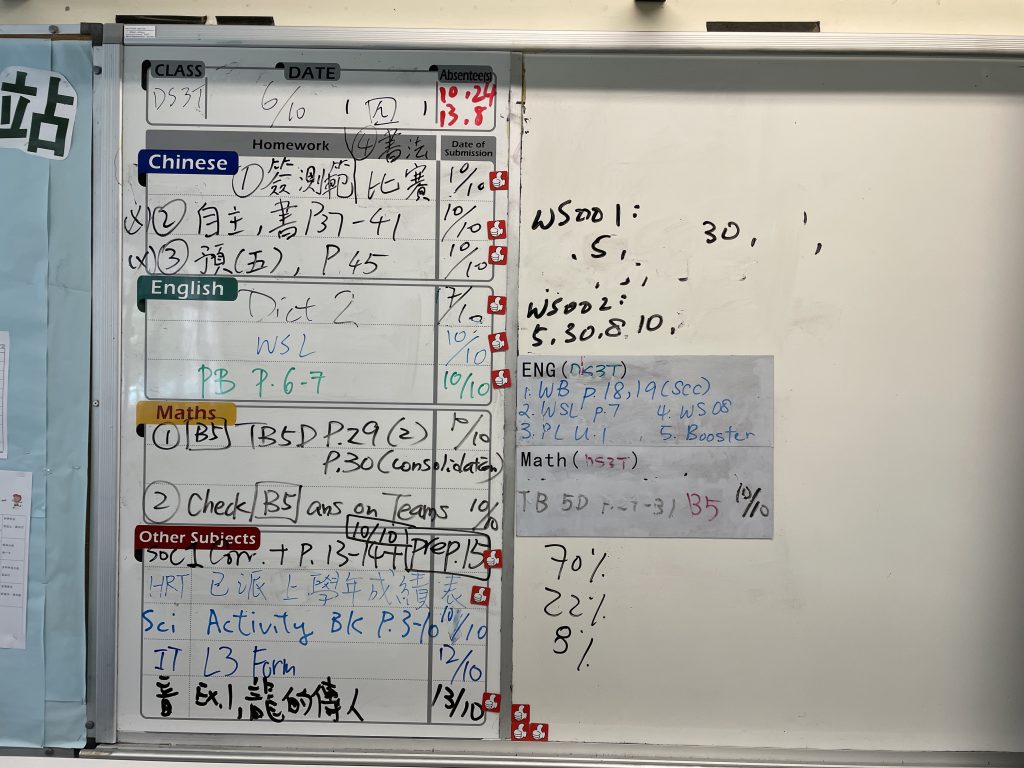 站
CLASS DATE Absentee(s)
DS3T 6/10 10.24
13.8
Homework Date of Submission
④書法
Chinese ①簽測範 比賽 10/10
② 自主,書P37-41 10/10
③ 預(五), P.45 10/10
English
Dict 2 7/10
WSL 10/10
PB P.6-7 10/10
Maths
① B5 TB5D P.29(2) 10/10
P.30(consolidation)
② Check B5 ans on Teams 10/10
Other Subjects 10/10
Corr. + P.13-14+ prep.15
HRT 已派上學年成績表
Sci Activity BK P.3-10 10/10
IT L3 Form 12/10
音 Ex.1,龍的傳人 13/10
WS001:
5, 30,
WS002:
5.30.8.10.
ENG(DS3T)
1. WB p.18,19(SCC)
2. WSL p.7 4. WS08
3. PL U.1 5. Booster
Math(DS3T)
TB 5D B5 10/10
70%
22%
8%